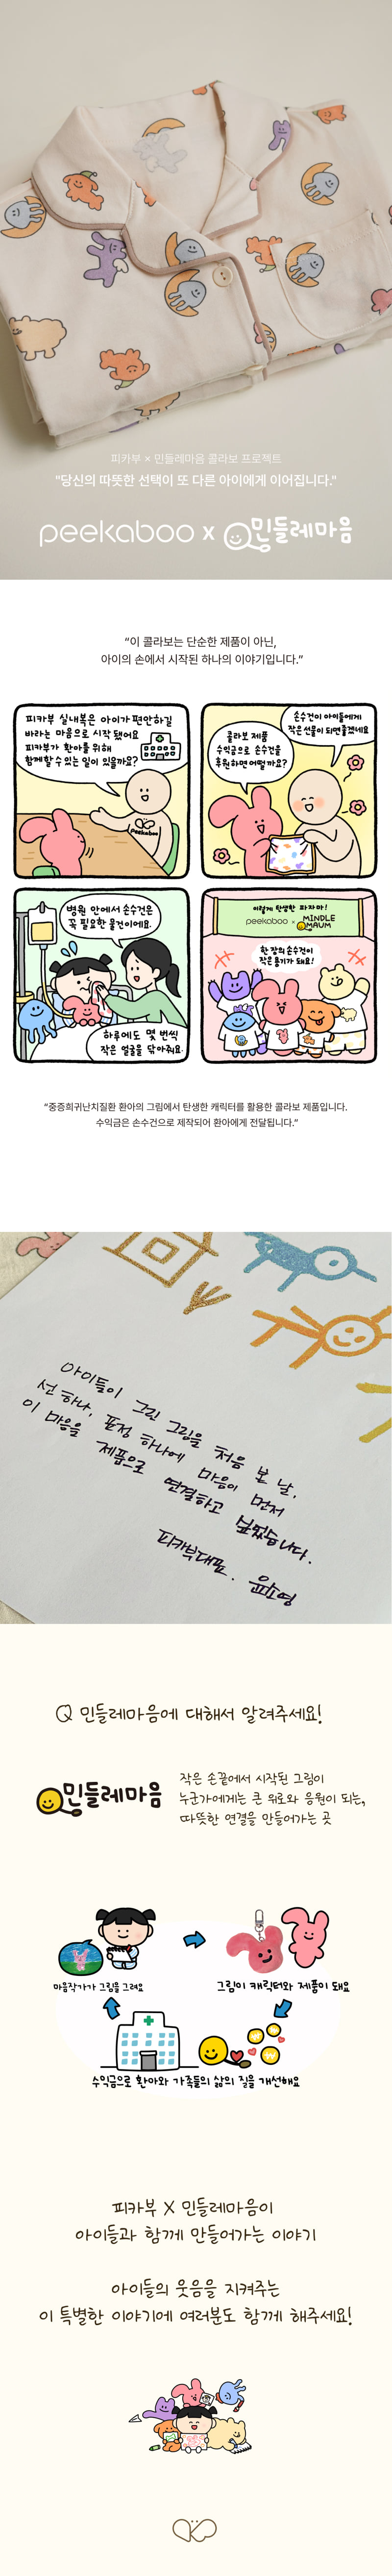 피카부 × 민들레마음 콜라보 프로젝트
"당신의 따뜻한 선택이 또 다른 아이에게 이어집니다."
peekaboo x 민들레마음
“이 콜라보는 단순한 제품이 아닌,
아이의 손에서 시작된 하나의 이야기입니다.”
피카부 실내복은 아이가 편안하길
바라는 마음으로 시작 됐어요
피카부가 환아를 위해
함께할 수 있는 일이 있을까요?
peekaboo
콜라보 제품
수익금으로 손수건을
후원하면 어떨까요?
손수건이 아이들에게
작은 선물이 되면 좋겠네요
병원 안에서 손수건은
꼭 필요한 물건이에요.
하루에도 몇 번씩
작은 얼굴을 닦아줘요
이렇게 탄생한 파자마!
peekaboo × MINDLE
MAUM
한 장의 손수건이
작은 용기가 돼요!
“중증희귀난치질환 환아의 그림에서 탄생한 캐릭터를 활용한 콜라보 제품입니다.
수익금은 손수건으로 제작되어 환아에게 전달됩니다.”
아이들이 그린 그림을 처음 본 날,
선 하나, 표정 하나에 마음이 먼저
이 마음을 제품으로 연결하고 싶었습니다.
피카부대표. 윤소영
Q 민들레마음에 대해서 알려주세요!
민들레마음
작은 손끝에서 시작된 그림이
누군가에게는 큰 위로와 응원이 되는,
따뜻한 연결을 만들어가는 곳
마음작가가 그림을 그려요
그림이 캐릭터와 제품이 돼요
수익금으로 환아와 가족들의 삶의 질을 개선해요
피카부 X 민들레마음이
아이들과 함께 만들어가는 이야기
아이들의 웃음을 지켜주는
이 특별한 이야기에 여러분도 함께 해주세요!